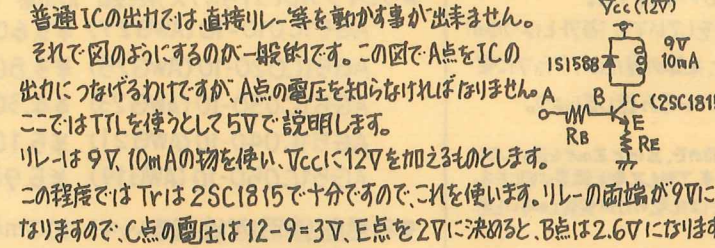 普通ICの出力では、直接リレー等を動かす事が出来ません。
それで図のようにするのが一般的です。この図でA点をICの
出力につなげるわけですが、A点の電圧を知らなければなりません。
ここではTTLを使うとして5Vで説明します。
リレーは9V、10mAの物を使い、Vccに12Vを加えるものとします。
この程度ではTrは2SC1815で十分ですので、これを使います。リレーの両端が9Vに
なりますので、C点の電圧は12-9=3V、E点を2Vに決めると、B点は2.6Vになります
Vcc(12V)
1S1588
9V
10mA
A
B
C (2SC1815
E
RB
RE